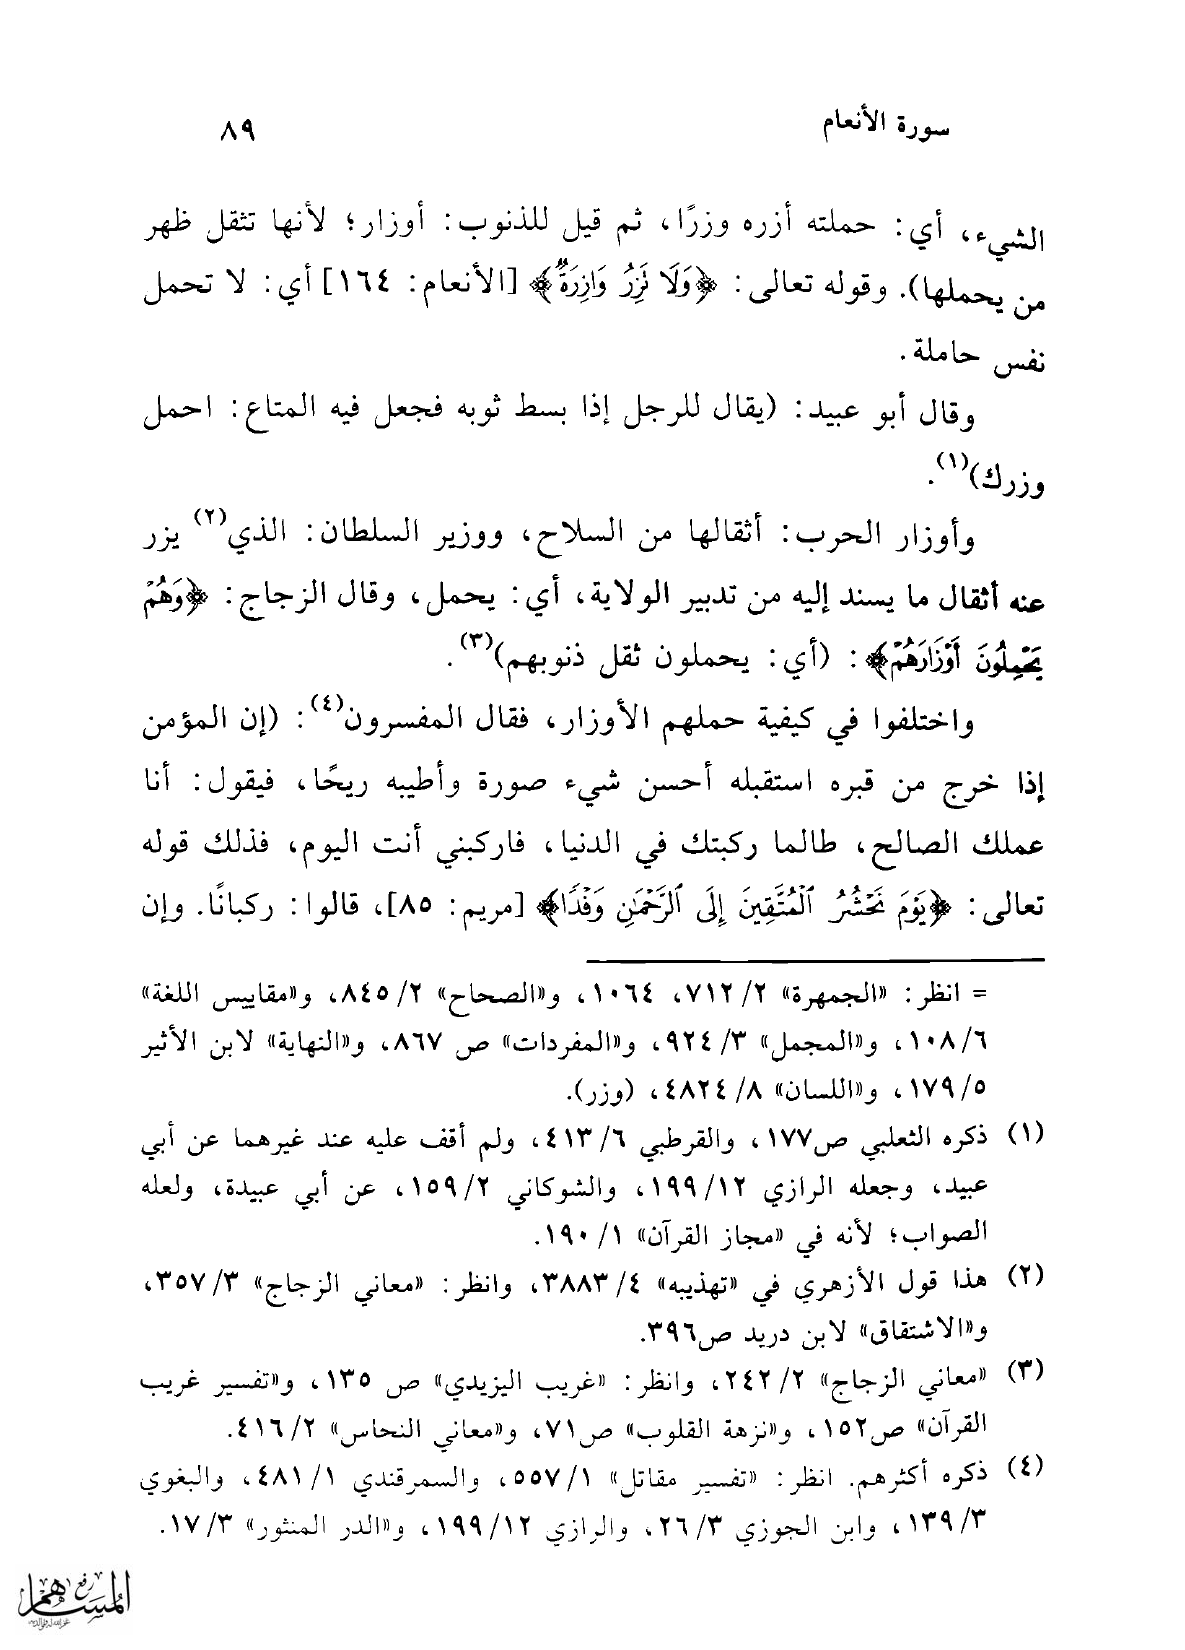 سورة الأنعام ٨٩
الشيء، أي: حملته أزره وزرًا، ثم قيل للذنوب: أوزار؛ لأنها تثقل ظهر
من يحملها). وقوله تعالى: ﴿وَلَا تَزِرُ وَازِرَةٌ﴾ [الأنعام: ١٦٤] أي: لا تحمل
نفس حاملة.
وقال أبو عبيد: (يقال للرجل إذا بسط ثوبه فجعل فيه المتاع: احمل
وزرك)(١).
وأوزار الحرب: أثقالها من السلاح، ووزير السلطان: الذي(٢) يزر
عنه أثقال ما يسند إليه من تدبير الولاية، أي: يحمل، وقال الزجاج: ﴿وَهُمْ
يَحْمِلُونَ أَوْزَارَهُمْ﴾: (أي: يحملون ثقل ذنوبهم)(٣).
واختلفوا في كيفية حملهم الأوزار، فقال المفسرون(٤): (إن المؤمن
إذا خرج من قبره استقبله أحسن شيء صورة وأطيبه ريحًا، فيقول: أنا
عملك الصالح، طالما ركبتك في الدنيا، فاركبني أنت اليوم، فذلك قوله
تعالى: ﴿يَوْمَ نَحْشُرُ الْمُتَّقِينَ إِلَى الرَّحْمَٰنِ وَفْدًا﴾ [مريم: ٨٥]، قالوا: ركبانًا. وإن
= انظر: «الجمهرة» ٢/ ٧١٢، ١٠٦٤، و«الصحاح» ٢/ ٨٤٥، و«مقاييس اللغة»
٦/ ١٠٨، و«المجمل» ٣/ ٩٢٤، و«المفردات» ص ٨٦٧، و«النهاية» لابن الأثير
٥/ ١٧٩، و«اللسان» ٨/ ٤٨٢٤، (وزر).
(١) ذكره الثعلبي ص١٧٧، والقرطبي ٦/ ٤١٣، ولم أقف عليه عند غيرهما عن أبي
عبيد، وجعله الرازي ١٢/ ١٩٩، والشوكاني ٢/ ١٥٩، عن أبي عبيدة، ولعله
الصواب؛ لأنه في «مجاز القرآن» ١/ ١٩٠.
(٢) هذا قول الأزهري في «تهذيبه» ٤/ ٣٨٨٣، وانظر: «معاني الزجاج» ٣/ ٣٥٧،
و«الاشتقاق» لابن دريد ص٣٩٦.
(٣) «معاني الزجاج» ٢/ ٢٤٢، وانظر: «غريب اليزيدي» ص ١٣٥، و«تفسير غريب
القرآن» ص١٥٢، و«نزهة القلوب» ص٧١، و«معاني النحاس» ٢/ ٤١٦.
(٤) ذكره أكثرهم. انظر: «تفسير مقاتل» ١/ ٥٥٧، والسمرقندي ١/ ٤٨١، والبغوي
٣/ ١٣٩، وابن الجوزي ٣/ ٢٦، والرازي ١٢/ ١٩٩، و«الدر المنثور» ٣/ ١٧.